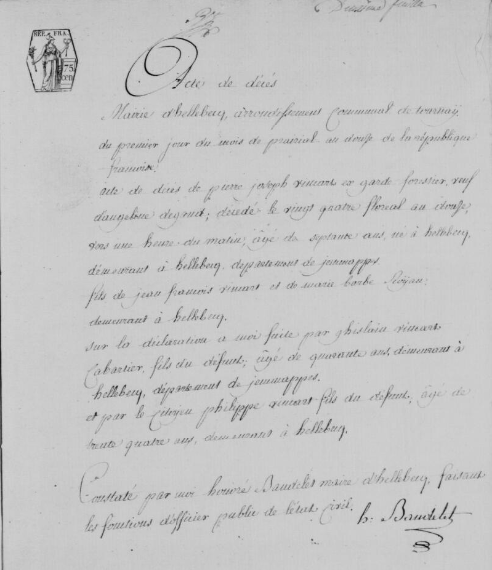 Deuxième feuille
RÉP. FRA.
75
CEN
Acte de décès
Mairie d'hellebecq, arrondissement Communal de tournay,
du premier jour du mois de prairial an douse de la république
francoise.
acte de deces de pierre joseph vincart ex garde forestier, veuf
d'angelique degand; décédé le vingt quatre floreal an douse,
vers une heure du matin; agé de septante ans, né à hellebecq,
démeurant à hellebecq, département de jemmappes
fils de jean francois vincart et de marie barbe
demeurant à hellebecq.
sur la déclaration a moi faite par ghislain vincart
Cabartier, fils du défunt; agé de quarante ans, demeurant à
hellebecq, département de jemmappes.
et par le Citoyen philippe vincart fils du défunt, agé de
trente quatre ans, demeurant à hellebecq.
Constaté par moi honoré Baudelet maire d'hellebecq, faisant
les fonctions d'officier public de l'état Civil. h. Baudelet